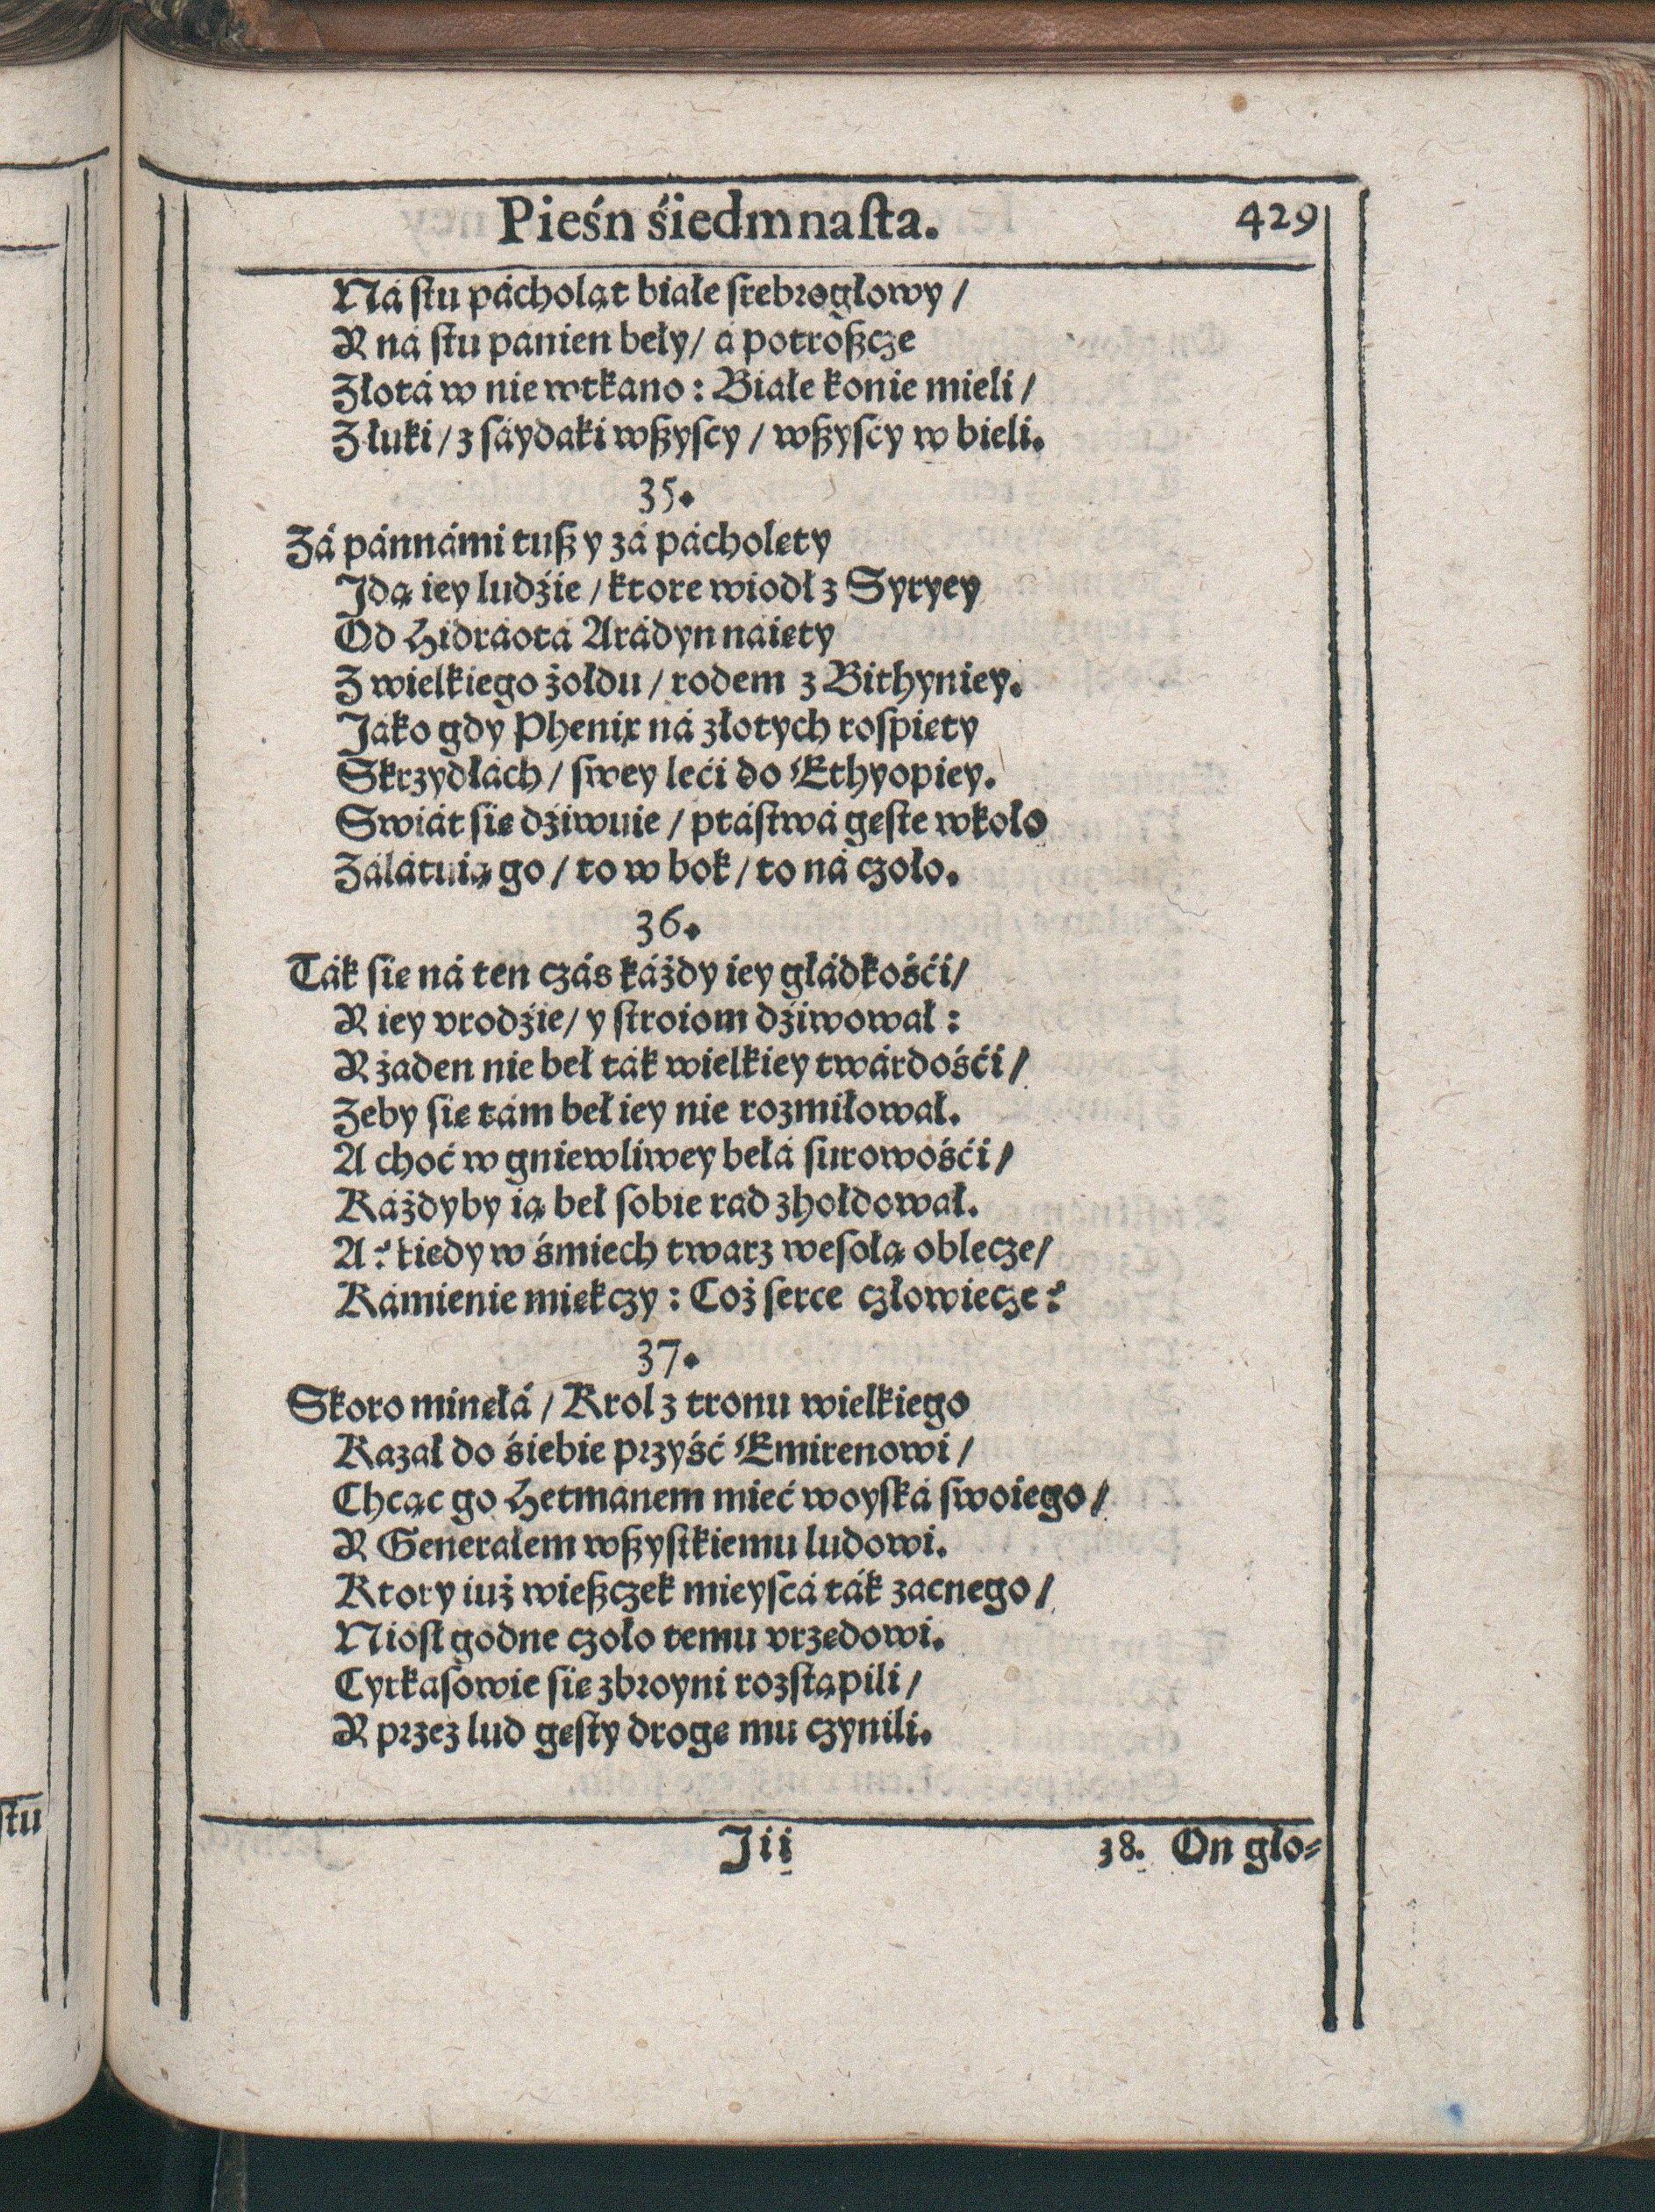 Pieśń śiedmnaſta. 429
Ná ſtu pácholąt białe ſrebrogłowy /
Y ná ſtu pánien były / á potroßcze
Złotá w nie wtkano : Białe konie mieli /
Z łuki / z ſáydaki wßyſcy / wßyſcy w bieli.
35.
Zá pánnámi tuß y zá pácholęty
Idą iey ludźie / ktore wiodł z Syryey
Od Hidráotá Arádyn náięty
Z wielkiego żołdu / rodem z Bithyniey.
Jáko gdy Phenix ná złotych roſpięty
Skrzydłách / ſwey leći do Ethyopiey.
Swiát ſię dźiwuie / ptáſtwá gęſte wkoło
Zálátuią go / to w bok / to ná czoło.
36.
Ták ſię ná ten czás káżdy iey głádkośći /
Y iey vrodźie / y ſtroiom dźiwował :
Y żaden nie beł ták wielkiey twárdośći /
Zeby ſię tám beł iey nie rozmiłował.
A choć w gniewliwey bełá ſurowośći /
Káżdyby ią beł ſobie rad zhołdował.
A ? kiedy w śmiech twarz weſołą oblecze /
Kámienie miękczy : Coż ſerce człowiecze ?
37.
Skoro minęłá / Krol z tronu wielkiego
Kazał do śiebie przyść Emirenowi /
Chcąc go Hetmanem mieć woyſká ſwoiego /
Y Generałem wßyſtkiemu ludowi.
Ktory iuż wießczek mieyſcá ták zacnego /
Nioſł godne czoło temu vrzędowi.
Cyrkaſowie ſię zbroyni rozſtąpili /
Y przez lud gęſty drogę mu czynili.
Iii 38. On gło=
ſtu